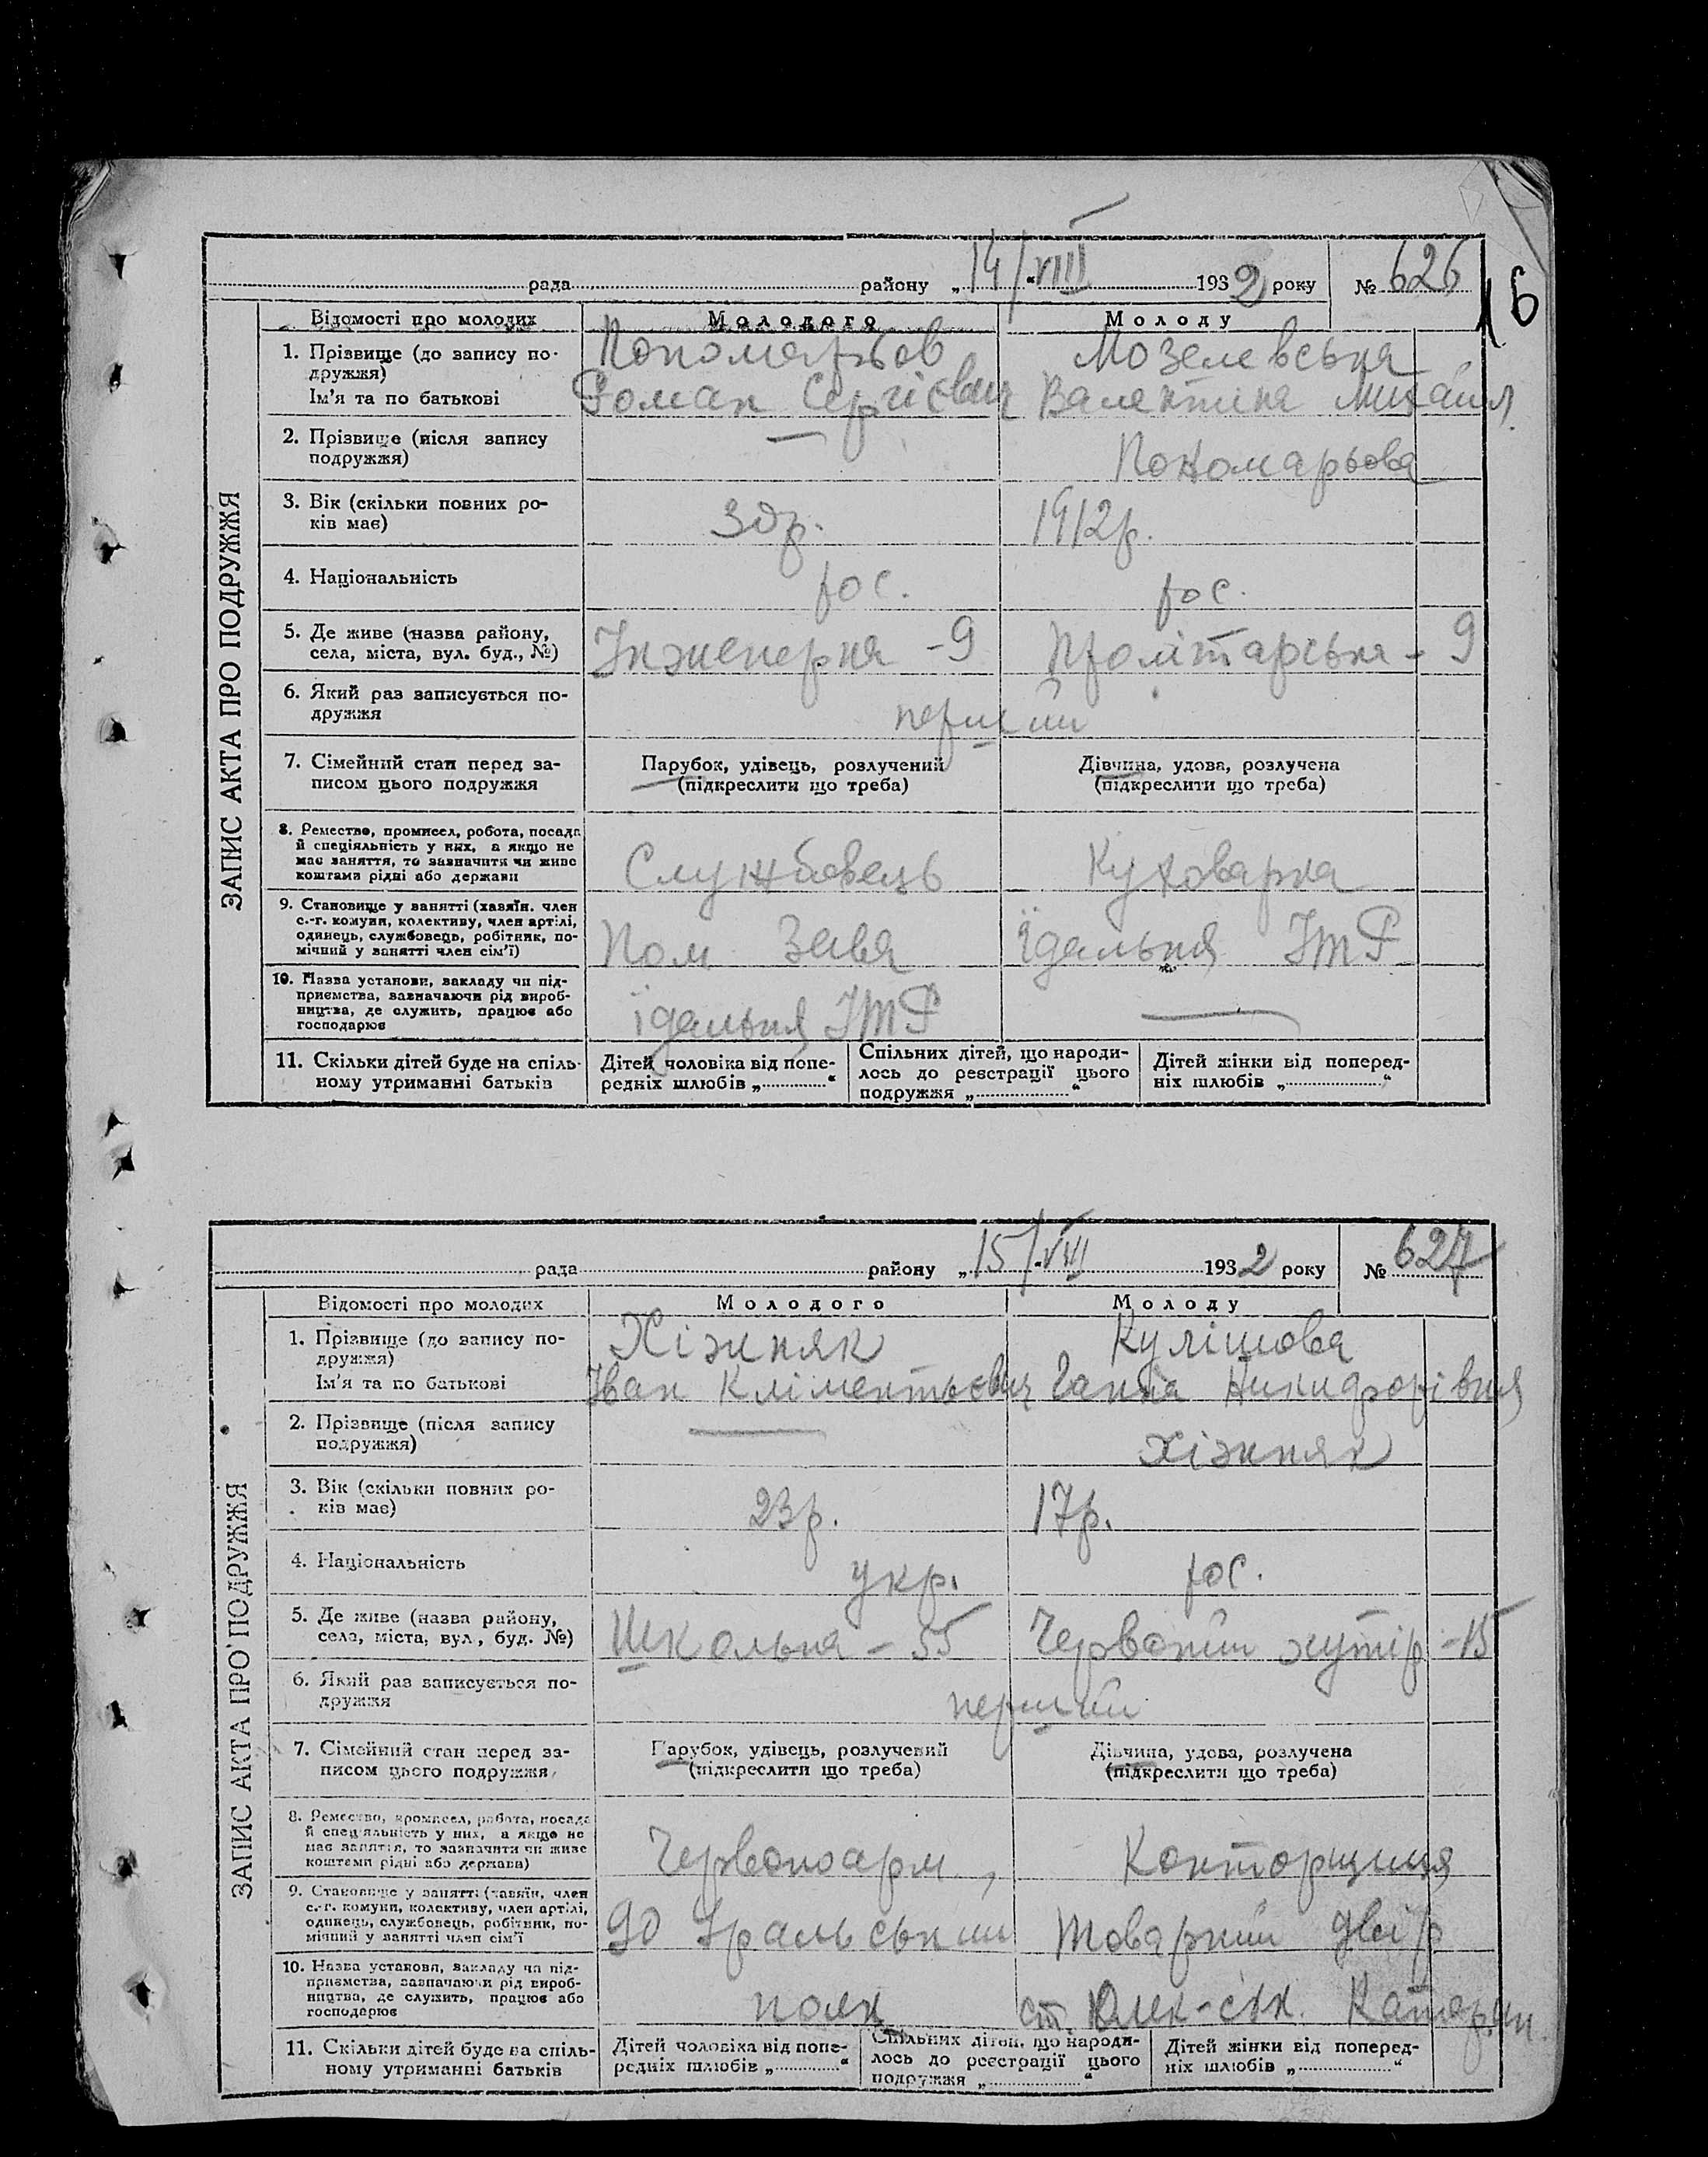 рада району „14/VIII“ 1932 року № 626
16
ЗАПИС АКТА ПРО ПОДРУЖЖЯ
Відомості про молодих Молодого Молоду
1. Прізвище (до запису по- Пономарьов Мозелевська
дружжя)
Ім'я та по батькові Роман Сергієвич Валентіна Михайл.
2. Прізвище (після запису —
подружжя) Пономарьова
3. Вік (скільки повних ро- 30р. 1912р.
ків має)
4. Національність рос. рос.
5. Де живе (назва району, Інженерна - 9 Пролітарська - 9
села, міста, вул. буд., №)
6. Який раз записується по- перший
дружжя
7. Сімейний стан перед за- Парубок, удівець, розлучений Дівчина, удова, розлучена
писом цього подружжя (підкреслити що треба) (підкреслити що треба)
8. Ремество, промисел, робота, посада
й спеціяльність у них, а якщо не
має заняття, то зазначити чи живе Службовець Куховарка
коштами рідні або держави
9. Становище у занятті (хазяїн, член
с.-г. комуни, колективу, член артілі,
одинець, службовець, робітник, по- Пом Зава Їдальня ІТР
мічний у занятті член сім'ї)
10. Назва установи, закладу чи під-
приємства, зазначаючи рід вироб-
ництва, де служить, працює або їдальня ІТР —
господарює
11. Скільки дітей буде на спіль- Дітей чоловіка від попе- Спільних дітей, що народи- Дітей жінки від поперед-
ному утриманні батьків редніх шлюбів „ “ лось до реєстрації цього ніх шлюбів „ “
подружжя „ “
рада району „15/VIII“ 1932 року № 627
ЗАПИС АКТА ПРО ПОДРУЖЖЯ
Відомості про молодих Молодого Молоду
1. Прізвище (до запису по- Хіжняк Кулішова
дружжя)
Ім'я та по батькові Іван Кліментьєвич Ганна Никифорівня
2. Прізвище (після запису —
подружжя) Хіжняк
3. Вік (скільки повних ро- 23р. 17р.
ків має)
4. Національність укр. рос.
5. Де живе (назва району, Школьна - 55 Червоний хутір - 15
села, міста, вул., буд. №)
6. Який раз записується по- перший
дружжя
7. Сімейний стан перед за- Парубок, удівець, розлучений Дівчина, удова, розлучена
писом цього подружжя (підкреслити що треба) (підкреслити що треба)
8. Ремество, промисел, робота, посада
й спеціяльність у них, а якщо не
має заняття, то зазначити чи живе Червоноарм., Конторщиця
коштами рідні або держави)
9. Становище у занятті (хазяїн, член
с.-г. комуни, колективу, член артілі,
одинець, службовець, робітник, по- 90 Уральський Товарний двір
мічний у занятті член сім'ї
10. Назва установи, закладу чи під-
приємства, зазначаючи рід вироб-
ництва, де служить, працює або полк ст. Катерин.
господарює
11. Скільки дітей буде на спіль- Дітей чоловіка від попе- Спільних дітей, що народи- Дітей жінки від поперед-
ному утриманні батьків редніх шлюбів „ “ лось до реєстрації цього ніх шлюбів „ “
подружжя „ “